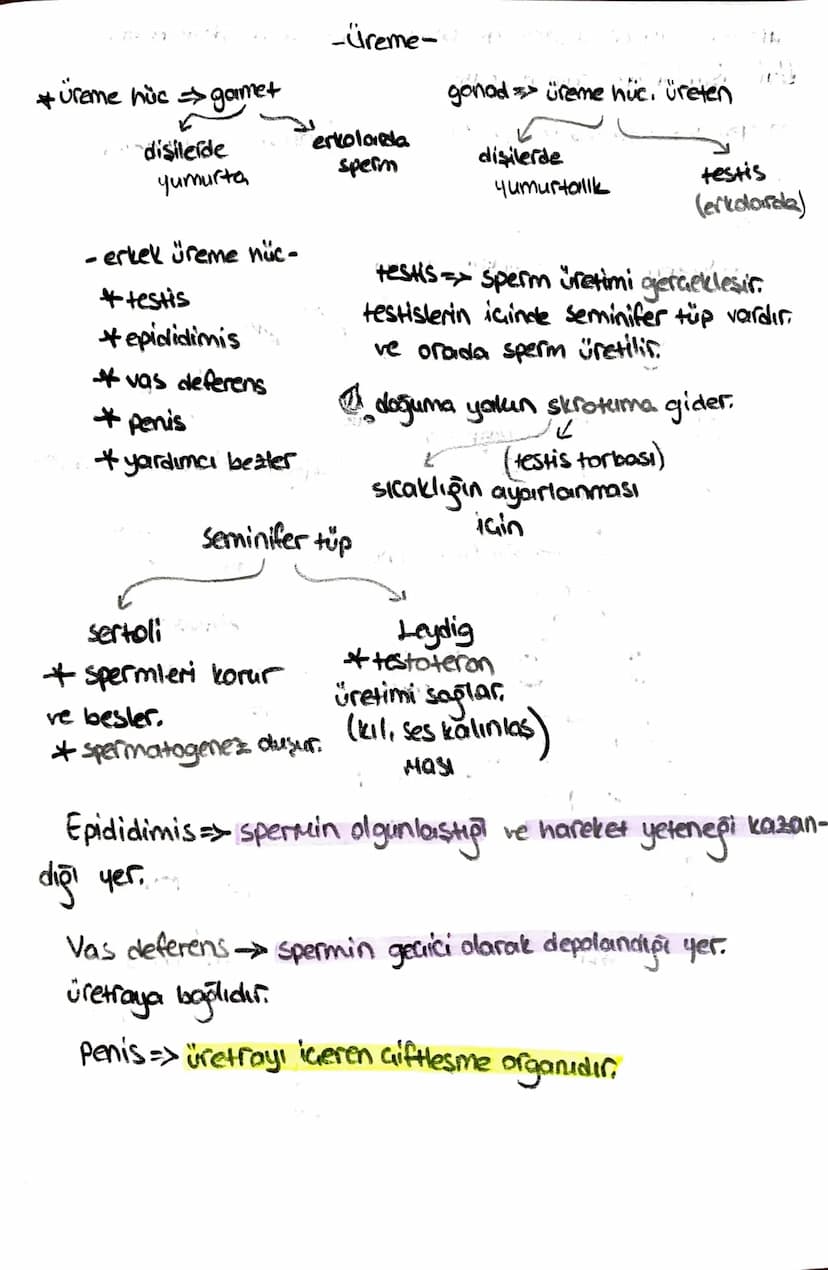 -Üreme-
* üreme hüc => gamet
dişilerde
yumurta
erkelarda
sperm
gonad => üreme hüc. üreten
dişilerde
yumurtalık
testis
(erkelarda)
- erkek üreme hüc -
* testis
* epididimis
* vas deferens
* penis
* yardımcı bezler
testis => sperm üretimi gerçekleşir.
testislerin içinde seminifer tüp vardır.
ve orada sperm üretilir.
doğuma yakın skrotuma gider.
(testis torbası)
sıcaklığın ayarlanması
için
Seminifer tüp
Sertoli
* spermleri korur
ve besler.
* spermatogenez
Leydig
* testoteron
üretimi sağlar.
(kıl, ses kalınlaş)
ması
Epididimis => spermin olgunlaştığı ve hareket yeteneği kazan-
dığı yer.
Vas deferens → spermin geçici olarak depolandığı yer.
üretraya bağlıdır.
Penis => üretrayı içeren çiftleşme organıdır.